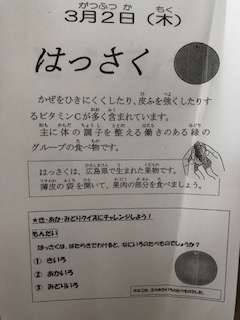 3月2日（木）
はっさく
かぜをひきにくくしたり、皮ふを強くしたりす
るビタミンCが多く含まれています。
主に体の調子を整える働きのある緑の
グループの食べ物です。
はっさくは、広島県で生まれた果物です。
薄皮の袋を開いて、果肉の部分を食べましょう。
★き・あか・みどりクイズにチャレンジしよう！
もんだい
はっさくは、はたらきでわけると、なにいろのたべものでしょうか？
① きいろ
② あかいろ
③ みどりいろ